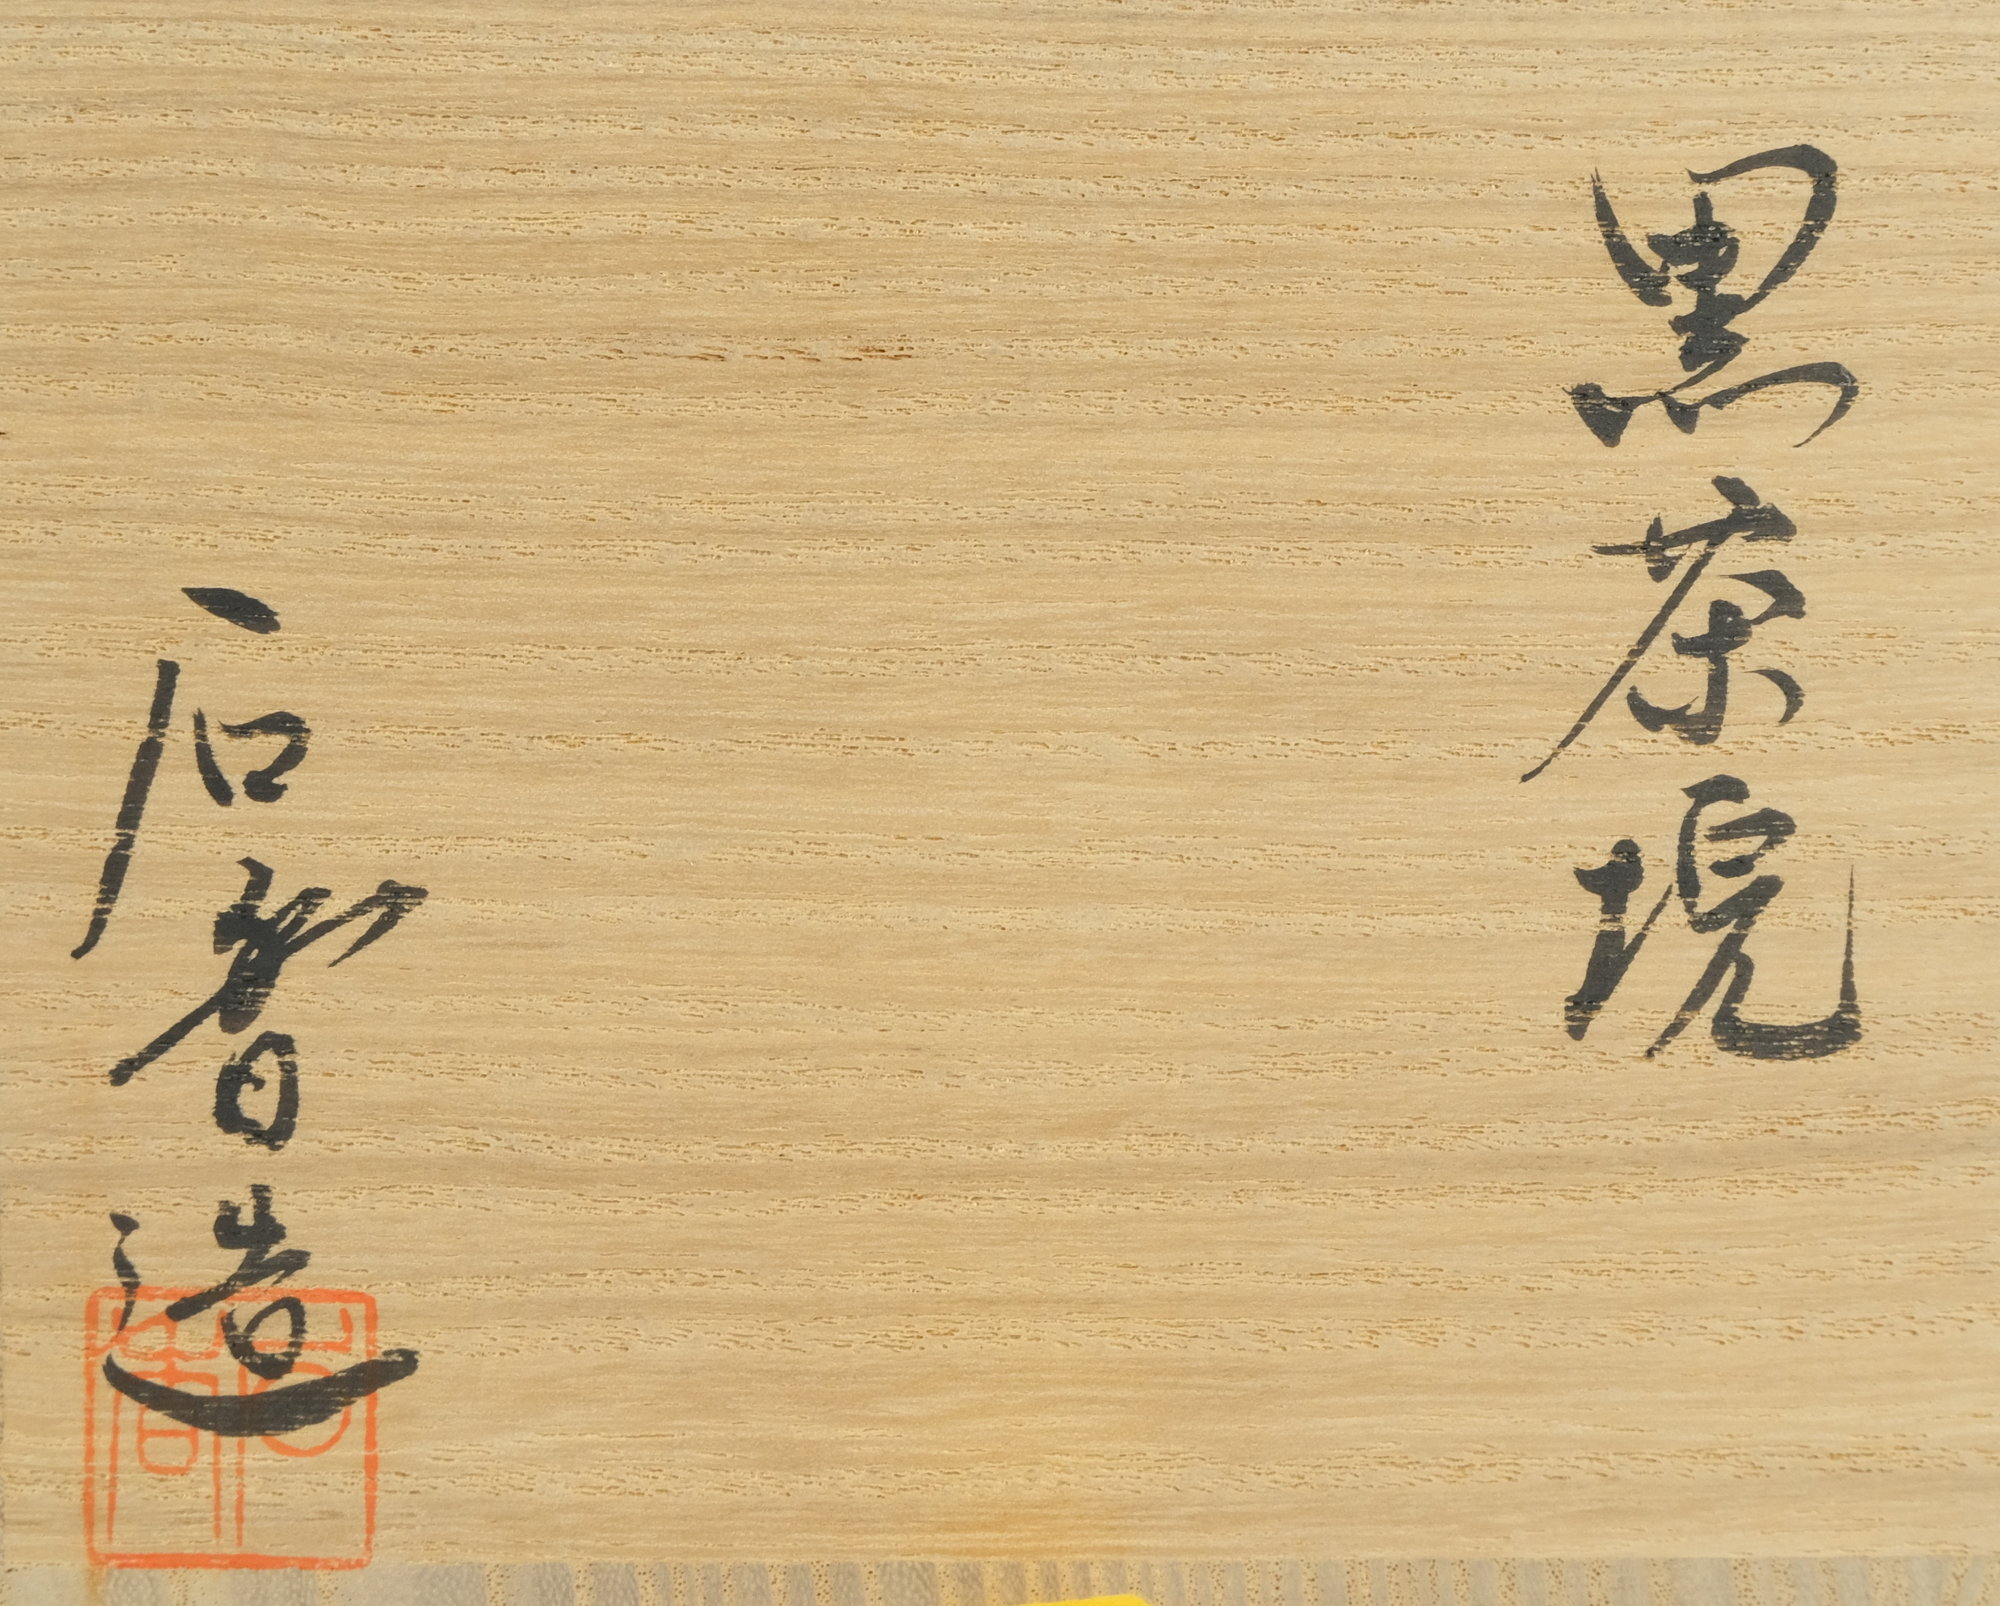 黒茶垸
石 造